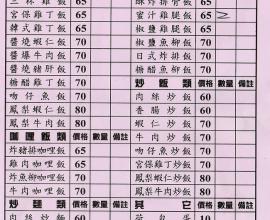 三杯雞飯 65
宮保雞丁飯 65
韓式雞丁飯 65
醬燒蝦仁飯 70
醬爆牛肉飯 70
醬燒豬肝飯 70
糖醋雞丁飯 70
吻仔魚飯 80
鳳梨蝦仁飯 80
鳳梨牛肉飯 80
咖哩飯類 價格 數量 備註
炸豬排咖哩飯 65
雞肉咖哩飯 65
炸魚柳咖哩飯 70
牛肉咖哩飯 70
炒麵類 價格 數量 備註
肉絲炒麵
酥炸排骨飯 65
蜜汁雞腿飯 65
椒鹽雞腿飯 65
椒鹽魚柳飯 70
日式炸排飯 70
糖醋魚柳飯 70
炒飯類 價格 數量 備註
肉絲炒飯 60
香腸炒飯 60
蝦仁炒飯 70
牛肉炒飯 70
吻仔魚炒飯 70
宮保雞丁炒飯 70
鳳梨蝦仁炒飯 80
鳳梨牛肉炒飯 80
其它 價格 數量 備註
荷包蛋 10